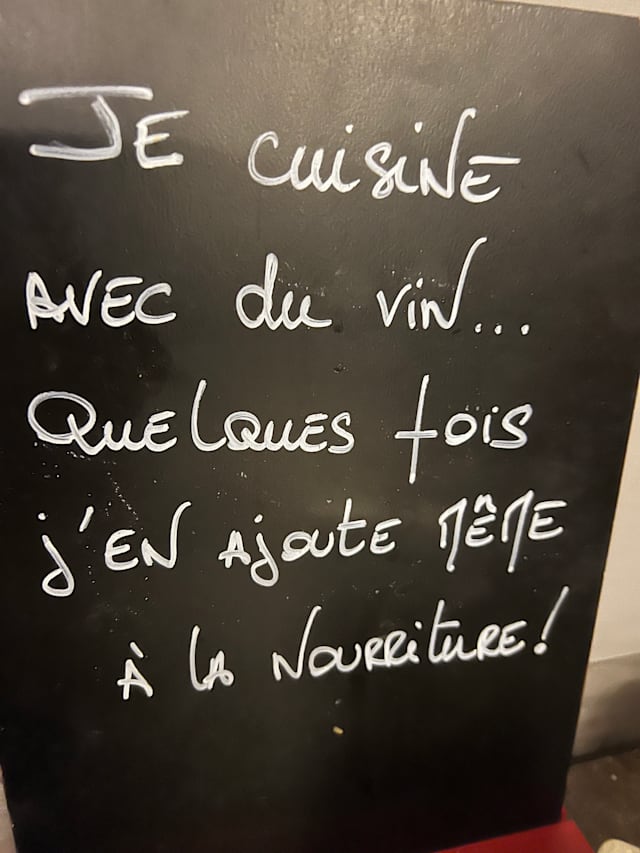 JE CUISINE
AVEC du VIN...
QUELQUES fois
j'EN AJOUTE MÊME
À LA NOURRITURE!